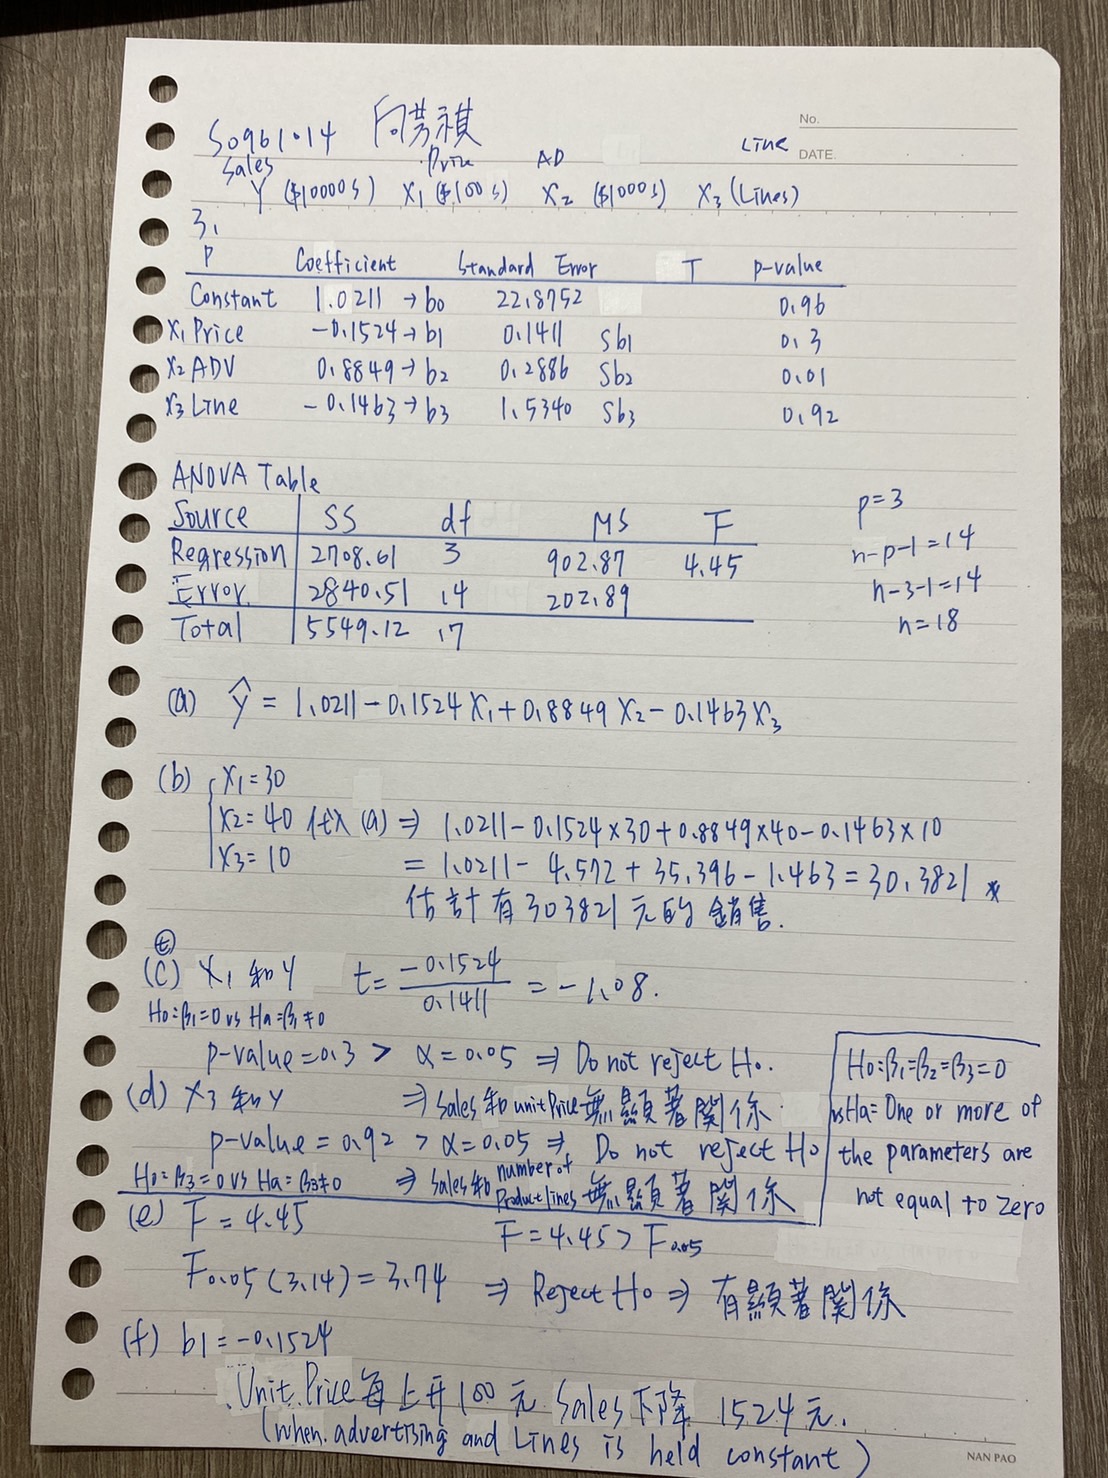 No.
S0961014
DATE.
Sales Price AD Line
Y ($10000s) X1 ($100s) X2 ($1000s) X3 (Lines)
3.
P Coefficient Standard Error T p-value
Constant 1.0211 → b0 22.8752 0.96
X1 Price -0.1524 → b1 0.1411 Sb1 0.3
X2 ADV 0.8849 → b2 0.2886 Sb2 0.01
X3 Line -0.1463 → b3 1.5340 Sb3 0.92
ANOVA Table
Source SS df MS F
Regression 2708.61 3 902.87 4.45
Error 2840.51 14 202.89
Total 5549.12 17
p=3
n-p-1=14
n-3-1=14
n=18
(a) Ŷ = 1.0211-0.1524X1+0.8849X2-0.1463X3
(b) X1=30
X2=40 代入(a) ⇒ 1.0211-0.1524×30+0.8849×40-0.1463×10
X3=10 = 1.0211-4.572+35.396-1.463=30.3821 *
估計有303821元的銷售.
(t)
(c) X1和Y t= -0.1524/0.1411 = -1.08.
H0:β1=0 vs Ha=β1≠0
p-value=0.3 > α=0.05 ⇒ Do not reject H0.
(d) X3和Y ⇒ Sales和unit Price無顯著關係
p-value=0.92 > α=0.05 ⇒ Do not reject H0
H0=β3=0 vs Ha=β3≠0 ⇒ Sales和number of Product lines無顯著關係
H0:β1=β2=β3=0
vs Ha=One or more of
the parameters are
not equal to zero
(e) F=4.45 F=4.45 > F0.05
F0.05(3.14)=3.74 ⇒ Reject H0 ⇒ 有顯著關係
(f) b1=-0.1524
Unit Price每上升100元 Sales下降 1524元.
(when advertising and Lines is held constant)
NAN PAO